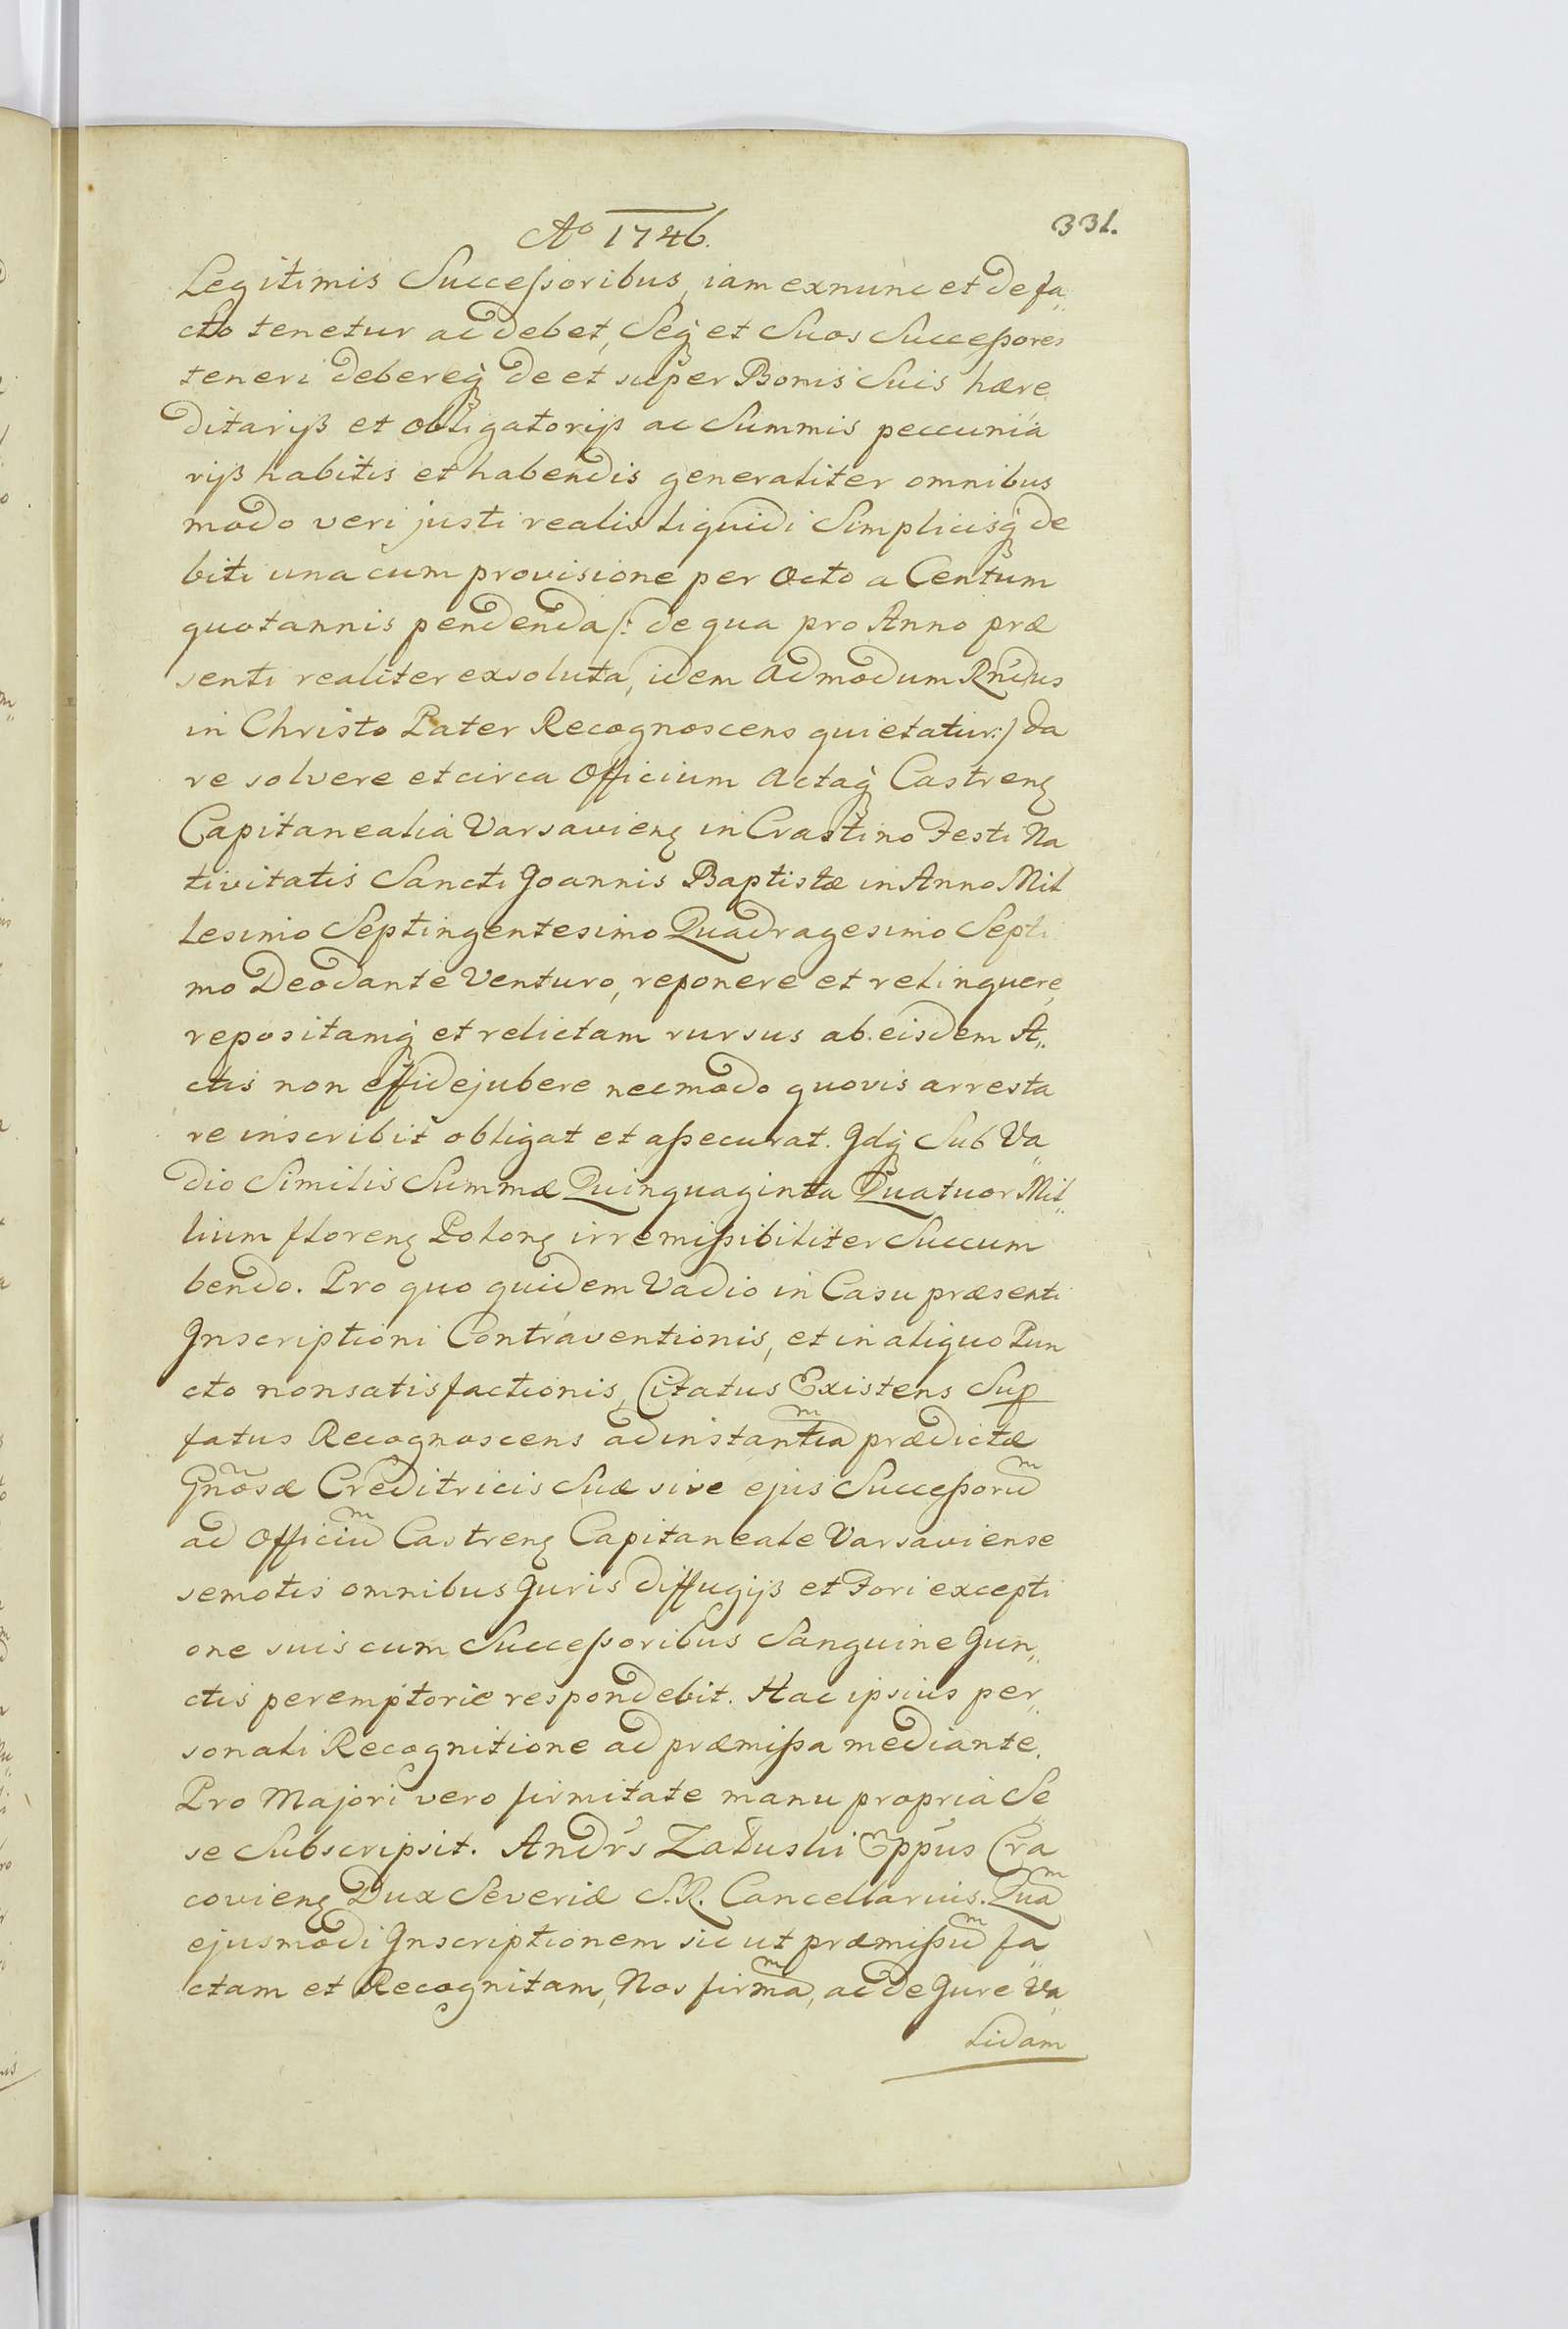 Aº 1746.
331.
Legitimis Successoribus, iam exnunc et de fa„
cto tenetur ac debet, Seq̃ et Suos Successores
teneri debereq̃ de et super Bonis Suis hære„
ditarijs et obligatorijs ac Summis peccunia
rijs habitis et habendis generaliter omnibus
modo veri justi realis liquidi Simplicisq̃ de
biti una cum provisione per Octo a Centum
quotannis pendenda /: de qua pro Anno præ
senti realiter exsoluta, idem Admodum Rńdus
in Christo Pater Recognoscens quietatur :/ da
re solvere et circa Officium Actaq̃ Castrenȩ
Capitanealia Varsavienȩ in Crastino Festi Na
tivitatis Sancti Joannis Baptistæ in Anno Mil
lesimo Septingentesimo Quadragesimo Septi
mo Deo dante Venturo, reponere et relinquere,
repositamq̃ et relictam rursus ab eisdem A„
ctis non effidejubere nec modo quovis arresta
re inscribit obligat et assecurat. Idq̃ Sub Va„
dio Similis Summæ Quinquaginta Quatuor Mil„
lium florenȩ Polonȩ irremissibiliter Succum
bendo. Pro quo quidem Vadio in Casu præsenti
Inscriptioni Contraventionis, et in aliquo Pun
cto non satisfactionis, Citatus Existens Sup
fatus Recognoscens ad instantiaᵐ prædictæ
Gñosæ Creditricis Suæ sive ejus Successoruᵐ
ad Officiuᵐ Castrenȩ Capitaneale Varsaviense
semotis omnibus Juris diffugijs et Fori excepti
one suis cum Successoribus Sanguine Jun„
ctis peremptorie respondebit. Hac ipsius per„
sonali Recognitione ad præmissa mediante.
Pro Majori vero firmitate manu propria Se
se Subscripsit. Andr̃s Załuski Epp̃us Cra
covienȩ Dux Severiæ S. R. Cancellarius. Quaᵐ
ejusmodi Inscriptionem sic ut præmissuᵐ fa„
ctam et Recognitam, Nos firmaᵐ, ac de Jure Va„
lidam